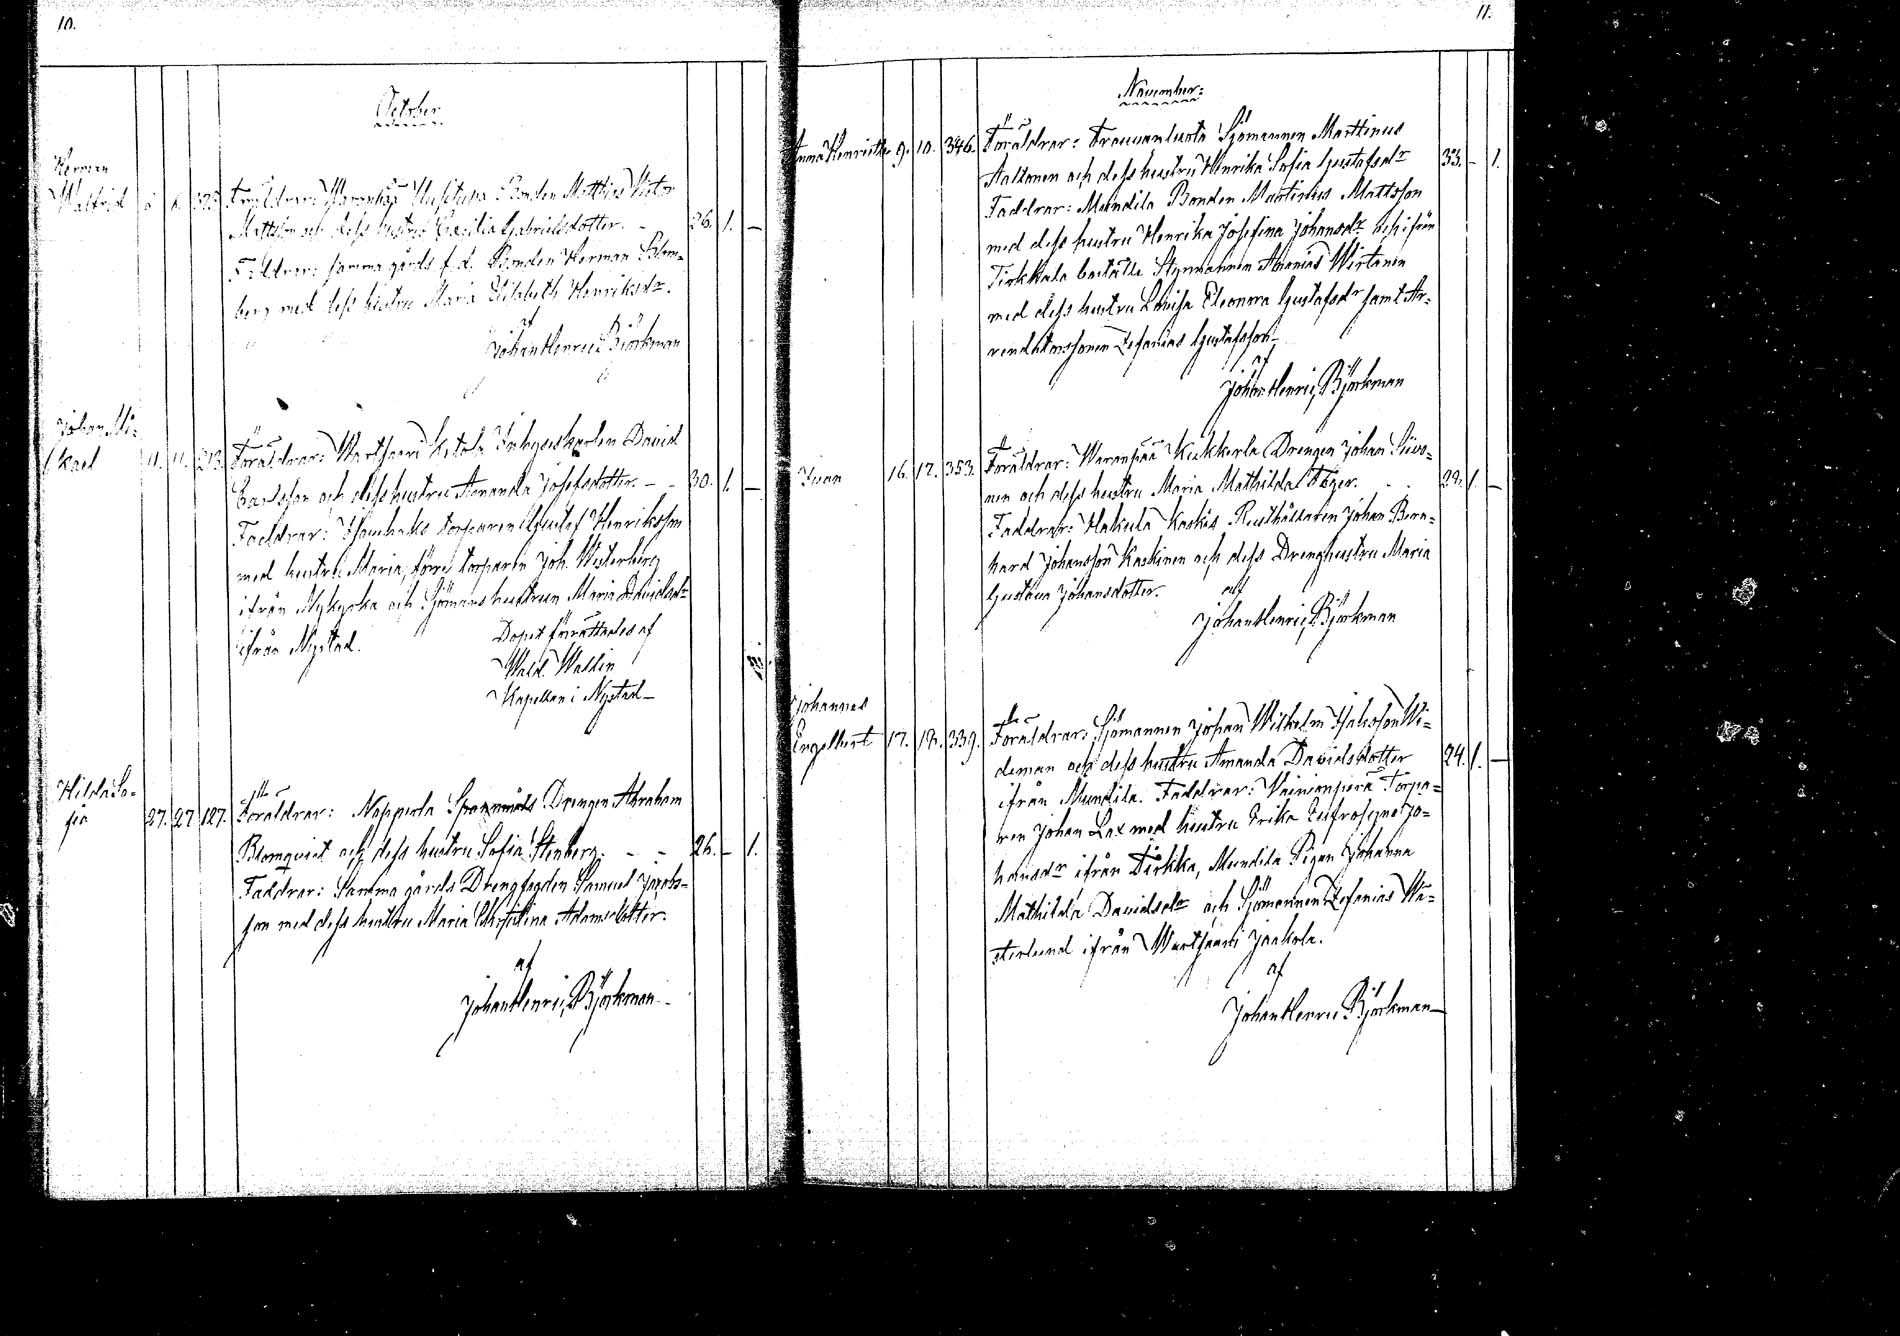 10.
October
Herman
Walfrid
Föräldrar: Waranpää Bonden Matthias Victor
Mattsson och dess hustru Cecilia Gabrielsdotter. - 26. 1. -
Faddrar: samma gårds f.d. Bonden Herman Blom-
berg med dess hustru Maria Elisabeth Henriksdr.
af
Johan Henric Björkman
Johan Mi-
kael 11. 11. 213.
Föräldrar: Wartsaari Ketola Inhyseskarlen David
Carlsson och dess hustru Amanda Josefsdotter. - - 30. 1. -
Faddrar: torparen Gustaf Henriksson
med hustru Maria, förre torparen Joh. Westerberg
ifrån Nykyrka och Sjömans hustrun Maria Davidsdr
ifrån Nystad.
Dopet förrättades af
Wald. Wallin
Kapellan i Nystad -
Hilda So-
fia 27. 27. 127.
Föräldrar: Nopperla Drengen Abraham
Blomqvist och dess hustru Sofia Stenberg. - - 26. - 1.
Faddrar: Samma gårds Drengfogden Samuel Jacobs-
son med dess hustru Maria Christina Adamsdotter.
af
Johan Henric Björkman
11.
November:
Anna Henrietta 9. 10. 346. Föräldrar: Sjömannen Marttinus
Aaltonen och dess hustru Henrika Sofia Gustafsdr 33. - 1.
Faddrar: Mundila Bonden Martinus Mattsson
med dess hustru Henrika Josefina Johansdr
Tirkkala Styrmannen Ananias Wirtanen
med dess hustru Lovisa Eleonora Gustafsdr samt Ar-
rendatorssonen Zefanias Gustafsson
af
Johan Henric Björkman
Ivan 16. 17. 353. Föräldrar: Waranpää Kukkerla Drengen Johan Siivo-
nen och dess hustru Maria Mathilda 29. 1. -
Faddrar: Hakula Kaskis Rusthållaren Johan Bern-
hard Johansson Kaskinen och dess Drenghustru Maria
Gustava Johansdotter.
af
Johan Henric Björkman
Johannes
Engelbert 17. 19. 339. Föräldrar: Sjömannen Johan Wilhelm Isaksson Wi-
deman och dess hustru Amanda Davidsdotter 24. 1. -
ifrån Mundila. Faddrar: Vainionperä Torpa-
ren Johan Lax med hustru Erika Eufrosyne Jo-
hansdr ifrån Tirkka, Mundila Pigan Johanna
Mathilda Davidsdr och Sjömannen Zefanias We-
sterlund ifrån Wartsaari Jaakola.
af
Johan Henric Björkman